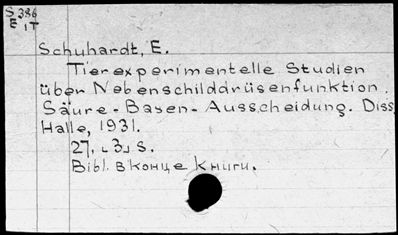 S 386
E 1T
Schuhardt, E.
Tierexperimentelle Studien
über Nebenschilddrüsenfunktion.
Säure-Basen-Ausscheidung. Diss
Halle, 1931.
27, ⌞3⌟ S.
Bibl. в конце книги.